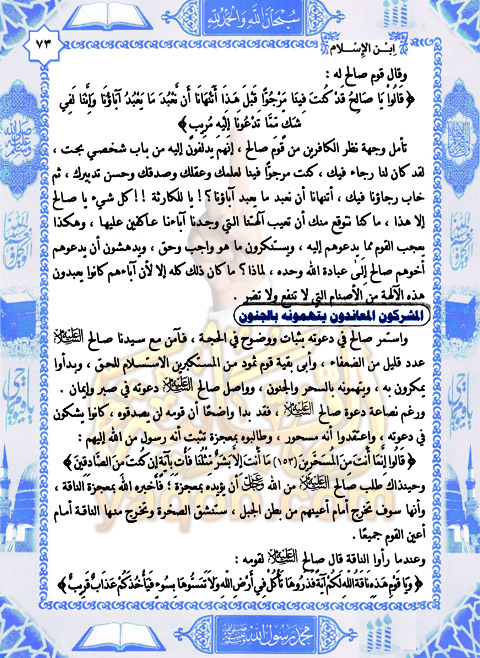 سبحان الله والحمد لله
ابن الإسلام
٧٣
وقال قوم صالح له :
﴿ قَالُوا يَا صَالِحُ قَدْ كُنتَ فِينَا مَرْجُوًّا قَبْلَ هَذَا أَتَنْهَانَا أَن نَّعْبُدَ مَا يَعْبُدُ آبَاؤُنَا وَإِنَّنَا لَفِي
شَكٍّ مِّمَّا تَدْعُونَا إِلَيْهِ مُرِيبٍ ﴾
تأمل وجهة نظر الكافرين من قوم صالح ، إنهم يدلفون إليه من باب شخصي بحت ،
لقد كان لنا رجاء فيك ، كنت مرجوًّا فينا لعلمك وعقلك وصدقك وحسن تدبيرك ، ثم
خاب رجاؤنا فيك ، أتنهانا أن نعبد ما يعبد آباؤنا ؟! يا للكارثة !! كل شيء يا صالح
إلا هذا ، ما كنا نتوقع منك أن تعيب آلهتنا التي وجدنا آباءنا عاكفين عليها ، وهكذا
يعجب القوم مما يدعوهم إليه ، ويستنكرون ما هو واجب وحق ، ويدهشون أن يدعوهم
أخوهم صالح إلى عبادة الله وحده ، لماذا ؟ ما كان ذلك كله إلا لأن آباءهم كانوا يعبدون
هذه الآلهة من الأصنام التي لا تنفع ولا تضر .
المشركون المعاندون يتهمونه بالجنون
واستمر صالح في دعوته بثبات ووضوح في الحجة ، فآمن مع سيدنا صالح عليه السلام
عدد قليل من الضعفاء ، وأبى بقية قوم ثمود من المستكبرين الاستسلام للحق ، وبدأوا
يمكرون به ، ويتهمونه بالسحر والجنون ، وواصل صالح عليه السلام دعوته في صبر وإيمان .
ورغم نصاعة دعوة صالح عليه السلام ، فقد بدا واضحًا أن قومه لن يصدقوه ، كانوا يشكون
في دعوته ، واعتقدوا أنه مسحور ، وطالبوه بمعجزة تثبت أنه رسول من الله إليهم :
﴿ قَالُوا إِنَّمَا أَنتَ مِنَ الْمُسَحَّرِينَ (١٥٣) مَا أَنتَ إِلَّا بَشَرٌ مِّثْلُنَا فَأْتِ بِآيَةٍ إِن كُنتَ مِنَ الصَّادِقِينَ ﴾
وحينذاك طلب صالح عليه السلام من الله عز وجل أن يؤيده بمعجزة ؛ فأخبره الله بمعجزة الناقة ،
وأنها سوف تخرج أمام أعينهم من بطن الجبل ، ستنشق الصخرة وتخرج منها الناقة أمام
أعين القوم جميعًا .
وعندما رأوا الناقة قال صالح عليه السلام لقومه :
﴿ وَيَا قَوْمِ هَذِهِ نَاقَةُ اللَّهِ لَكُمْ آيَةً فَذَرُوهَا تَأْكُلْ فِي أَرْضِ اللَّهِ وَلَا تَمَسُّوهَا بِسُوءٍ فَيَأْخُذَكُمْ عَذَابٌ قَرِيبٌ ﴾
محمد رسول الله